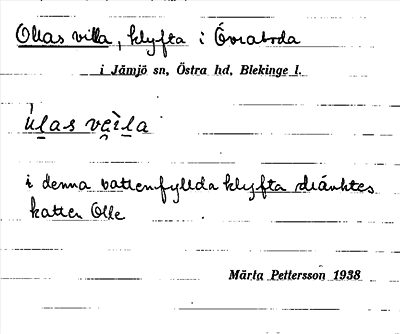 Ollas villa, klyfta i Övraboda
i Jämjö sn, Östra hd, Blekinge l.
ùlas vèila
i denna vattenfyllda klyfta dränktes
katten Olle
Märta Pettersson 1938